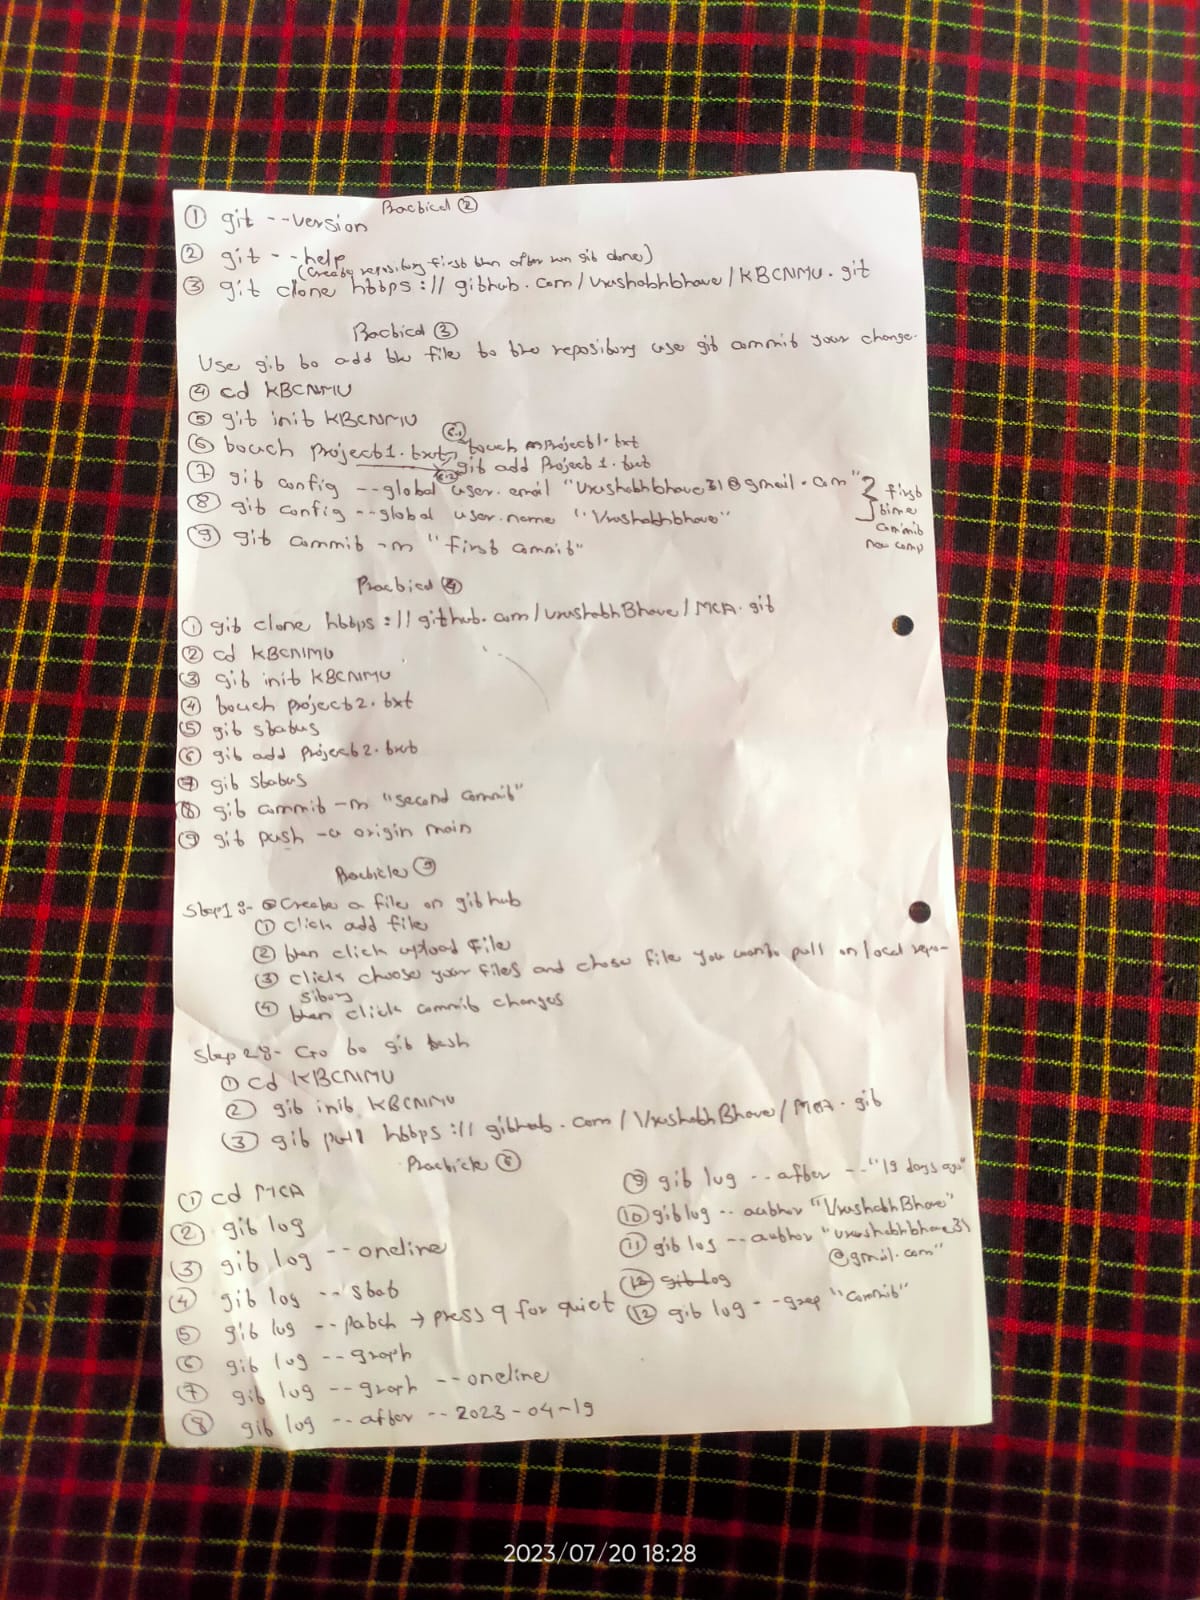 Practical ②
① git --version
② git --help
(Create repository first then after run git clone)
③ git clone https://github.com/vrushabhbhave/KBCNMU.git
Practical ③
Use git to add the file to the repository use git commit your change.
④ cd KBCNMU
⑤ git init KBCNMU
⑥ touch project1.txt
touch Project1.txt
git add Project1.txt
⑦ git config --global user.email "vrushabhbhave31@gmail.com"
⑧ git config --global user.name "Vrushabhbhave"
first
time
commit
new comp
⑨ git commit -m "first commit"
Practical ④
① git clone https://github.com/vrushabhBhave/MCA.git
② cd KBCNMU
③ git init KBCNMU
④ touch project2.txt
⑤ git status
⑥ git add Project2.txt
⑦ git status
⑧ git commit -m "second commit"
⑨ git push -u origin main
Step1:- Create a file on github
① click add file
② then click upload file
③ click choose your files and chose file you want to pull on local repo-
sitory
④ then click commit changes
Step 2:- Go to git bash
① cd KBCNMU
② git init KBCNMU
③ git pull https://github.com/VrushabhBhave/MCA.git
Practicle ⑥
① cd MCA
② git log
③ git log --oneline
④ git log --stat
⑤ git log --patch → press q for quiet
⑥ git log --graph
⑦ git log --graph --oneline
⑧ git log --after --2023-04-19
⑨ git log --after --"19 days ago"
⑩ git log --author "VrushabhBhave"
⑪ git log --author "vrushabhbhave31
@gmail.com"
⑫ git log
⑫ git log --grep "commit"
2023/07/20 18:28